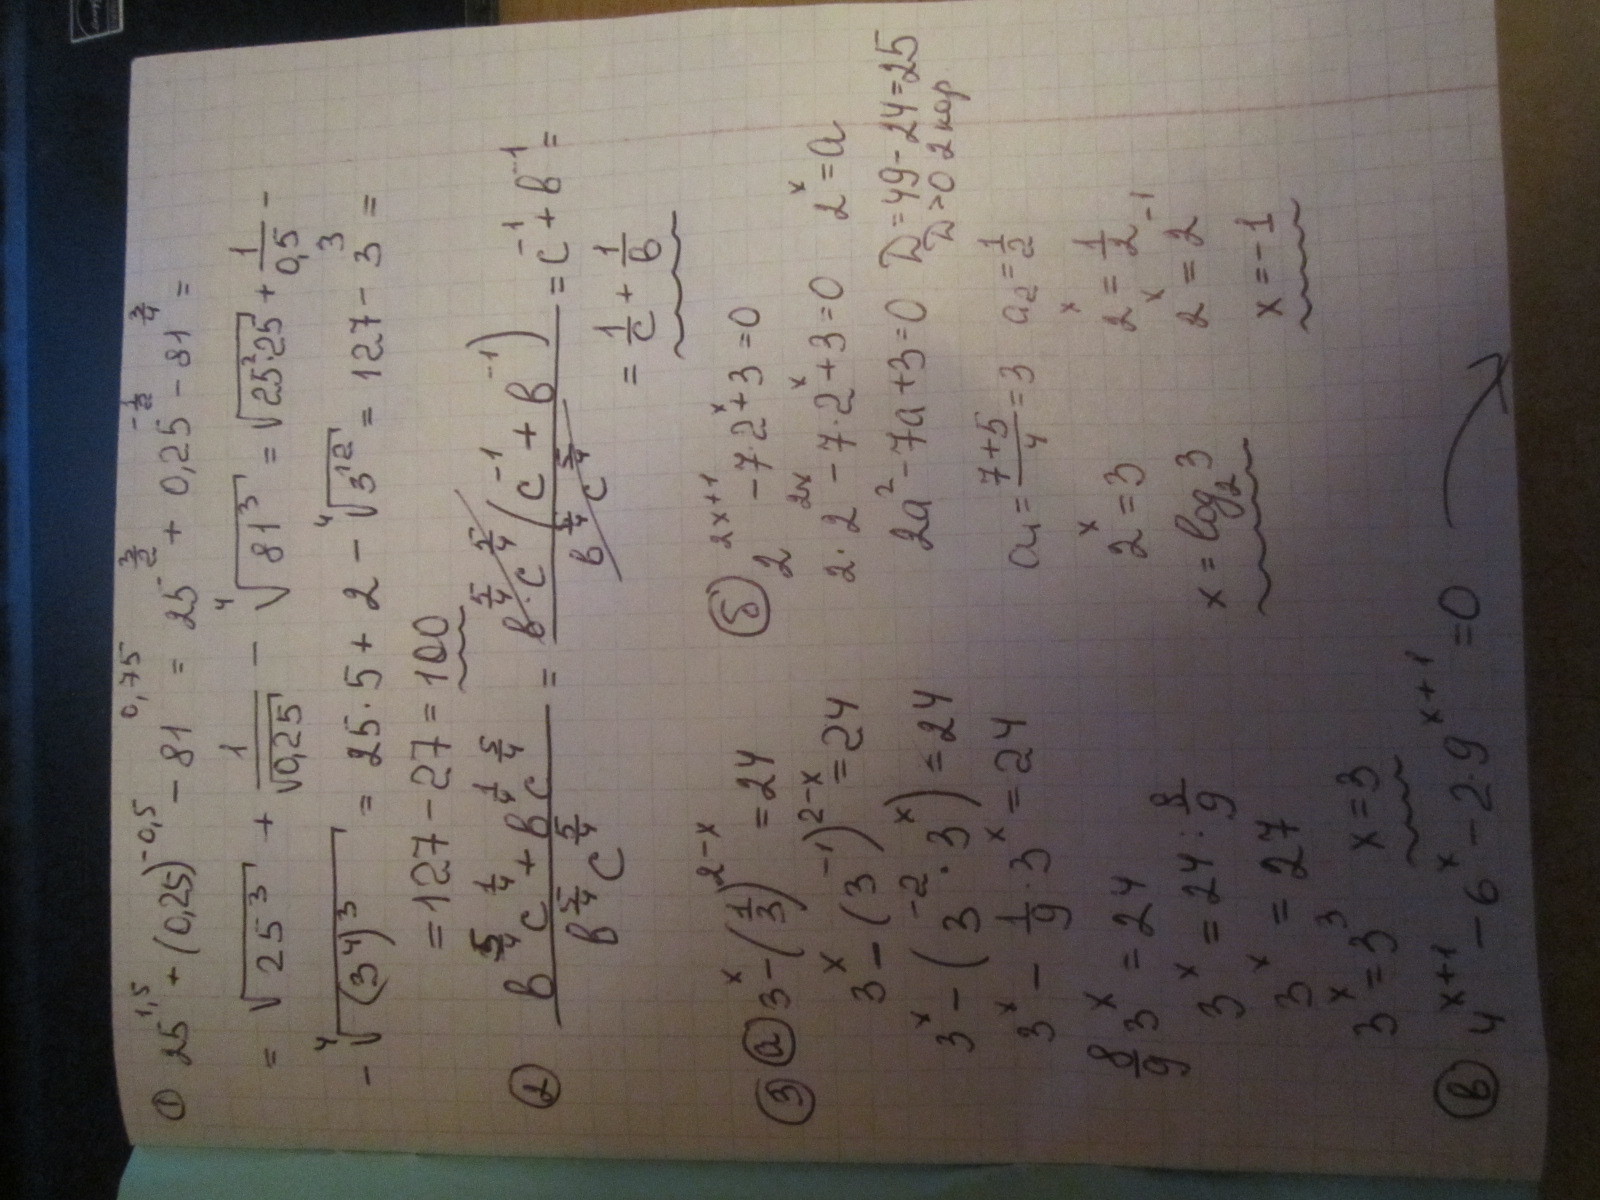 ① 25^1,5 + (0,25)^-0,5 - 81^0,75 = 25^(3/2) + 0,25^(-1/2) - 81^(3/4) =
= √(25³) + 1/√(0,25) - ⁴√(81³) = √(25²·25) + 1/0,5 -
- ⁴√((3⁴)³) = 25·5 + 2 - ⁴√(3¹²) = 127 - 3³ =
= 127 - 27 = 100
② (в^(5/4) c^(1/4) + в^(1/4) c^(5/4)) / (в^(5/4) c^(5/4)) = (в^(5/4)·c^(5/4) (c^-1 + в^-1)) / (в^(5/4) c^(5/4)) = c^-1 + в^-1 =
= 1/c + 1/в
③ а) 3^x - (1/3)^(2-x) = 24
3^x - (3^-1)^(2-x) = 24
3^x - (3^-2 · 3^x) = 24
3^x - 1/9 · 3^x = 24
8/9 3^x = 24
3^x = 24 : 8/9
3^x = 27
3^x = 3³ x = 3
б) 2^(2x+1) - 7·2^x + 3 = 0
2·2^(2x) - 7·2^x + 3 = 0 2^x = a
2a² - 7a + 3 = 0 D = 49 - 24 = 25
D > 0 2 кор
a₁ = (7+5)/4 = 3 a₂ = 1/2
2^x = 3 2^x = 1/2
x = log₂3 2^x = 2^-1
x = -1
в) 4^(x+1) - 6^x - 2·9^(x+1) = 0